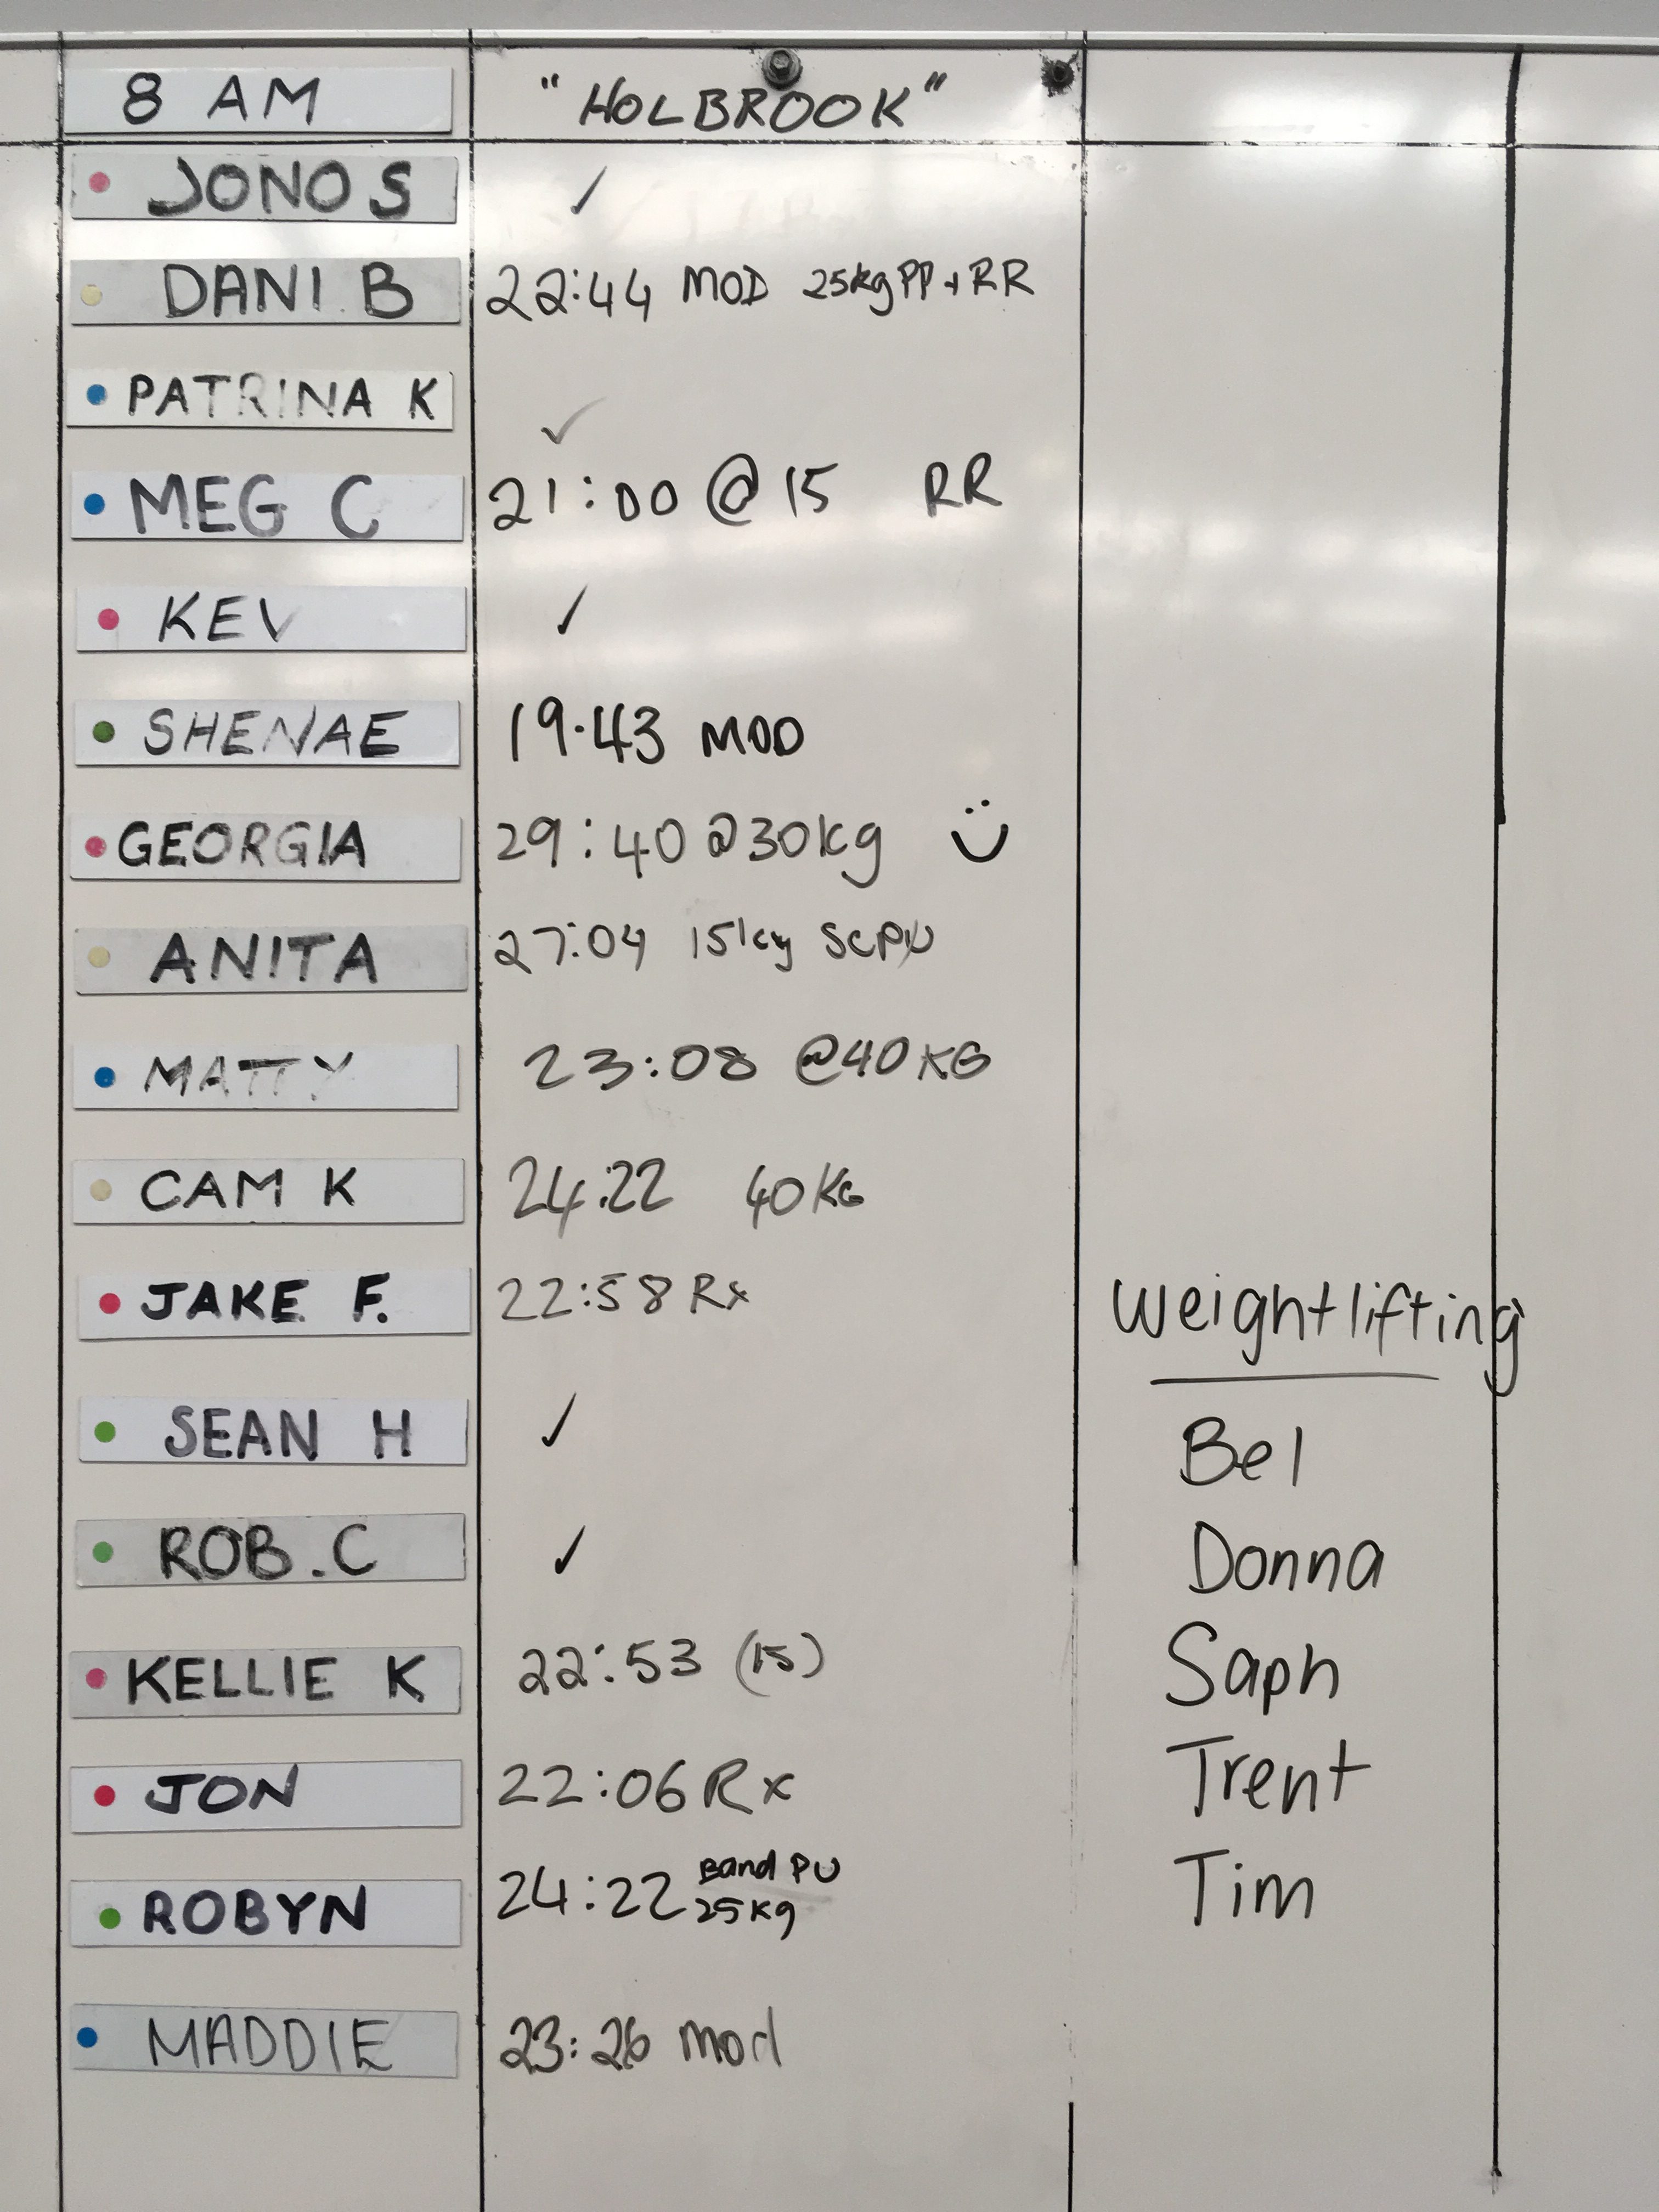 8 AM "HOLBROOK"
JONO S ✓
DANI B 22:44 MOD 25kg PP + RR
PATRINA K ✓
MEG C 21:00 @ 15 RR
KEV ✓
SHENAE 19.43 MOD
GEORGIA 29:40 @30kg
ANITA 27:04 15kg SCPU
MATTY 23:08 @40KG
CAM K 24:22 40KG
JAKE F. 22:58 Rx
SEAN H ✓
ROB.C ✓
KELLIE K 22:53 (15)
JON 22:06 Rx
ROBYN 24:22 Band PU
25kg
MADDIE 23:26 Mod
Weightlifting
Bel
Donna
Saph
Trent
Tim